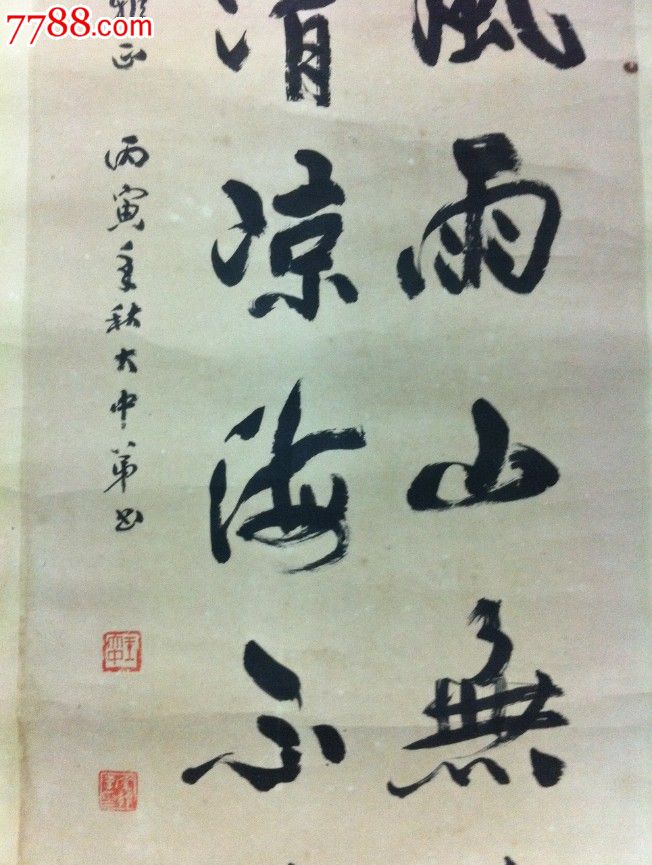 7788.com
風雨山無
清凉海不
雅正 丙寅年秋大中第书